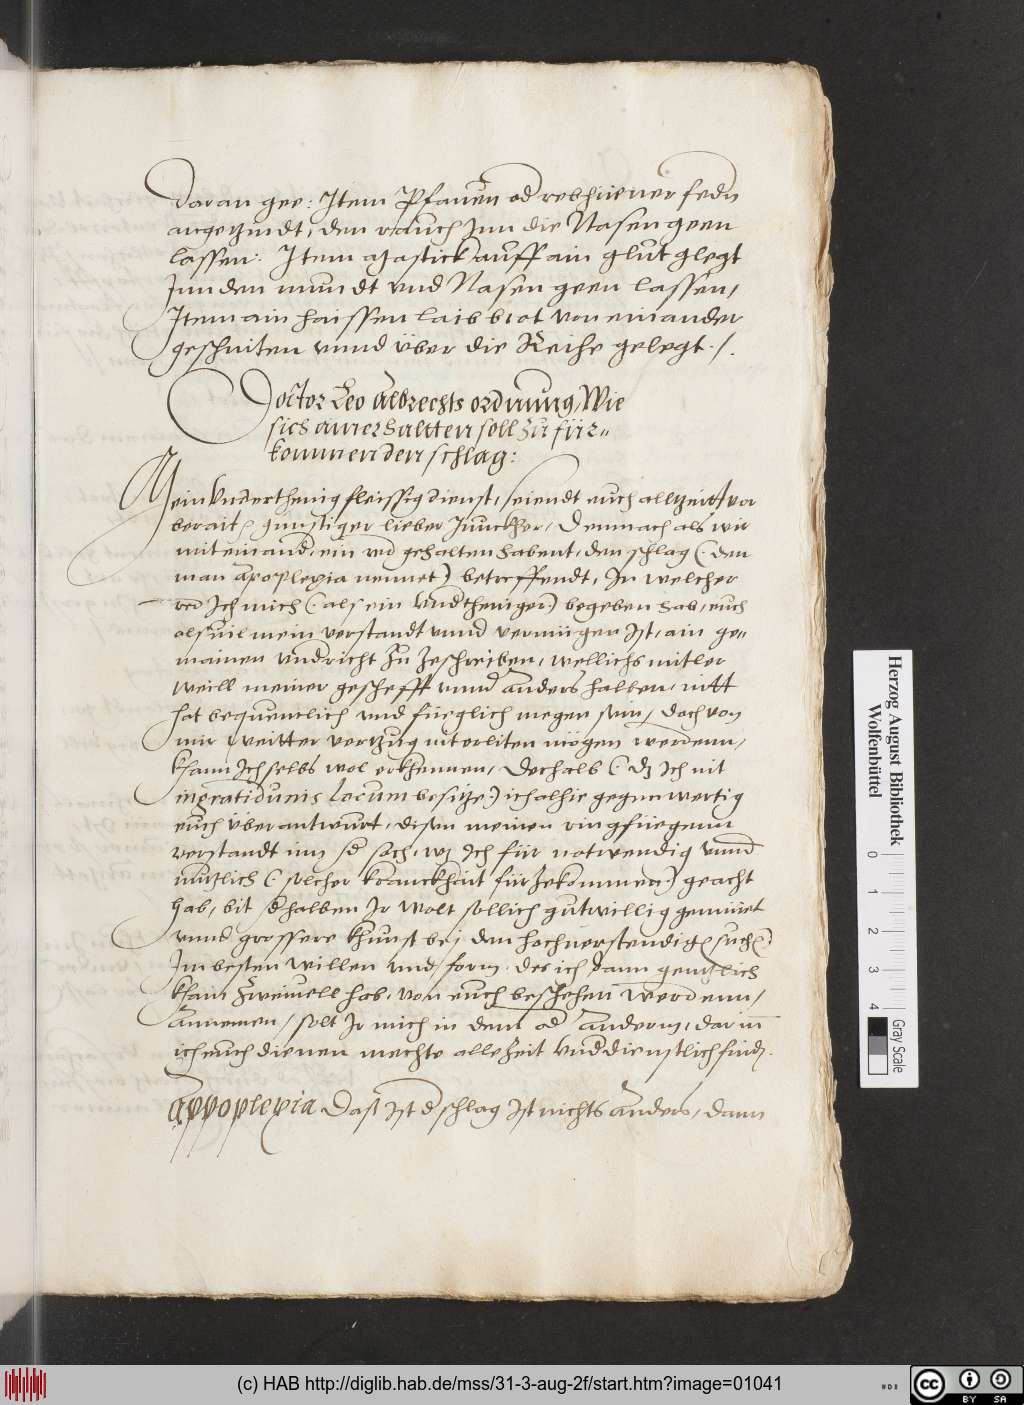 daran gee: Item Pfauen od rebhüener fedn
angezindt, den rauch Jnn die Nasen geen
lassen: Item Mastick auff ain glut glegt
Jnn den mundt vnd Nasen geen lassen,
Item ain haissen laib brot von einander
geschniten vnnd über die Reihe gelegt ./.
Doctor Leo Albrechts ordnung, Wie
sich ainer haltten soll zu für=
kommen den schlag:
Mein vndterthenig fleissig dienst, seiendt euch alltzeit vor
berait, gunstiger lieber Junckher, Demnach als wir
mit einand, ein red gehalten habent, den schlag (. den
man apoplexia nennet) betreffendt, In welcher
red Ich mich (. als ein Vndtheniger.) begeben hab, euch
alsuil mein verstandt vnnd vermügen Ist, ain ge=
mainen vndricht Zu Zeschreiben, wellichs mitler
weill meiner gescheft vnnd anders halben, nitt
hat bequentlich vnd füeglich megen sein, doch von
mir weitter vertzug nit erliten mögen werdenn,
khann Ich selbs wol erkhennen, deshalb (. dz Ich nit
ingratidunis locum besitze.) ich alhie gegenwertig
euch überantwurt, disen meinen ringfüegenn
verstandt inn d sach, wz Ich für notwendig vnnd
nutzlich (. solcher kranckhait für Zekommen.) geacht
hab, bit dhalben Ir wolt sollich gutwillig gemüet
vnnd grossere khunst bei den hochuerstendigen suchen
Im besten willen vnd form, des ich dann gentzlich
khain Zweiuell hab, von euch beschehen werdenn,
annemen, solt Ir mich in dem od anderm, dar inn
ich euch dienen mechte alle Zeit vnd dienstlich findn.
Appoplexia Dasz ist d schlag Ist nichts anders, dann
Herzog August Bibliothek
Wolfenbüttel
0 1 2 3 4
Gray Scale
(c) HAB http://diglib.hab.de/mss/31-3-aug-2f/start.htm?image=01041
cc BY SA